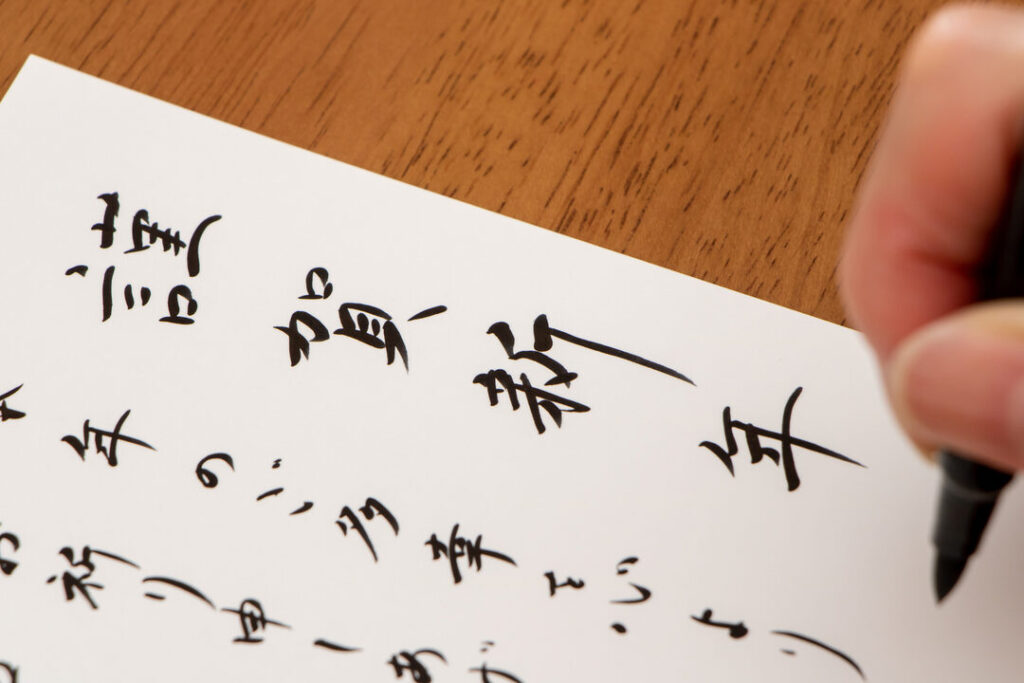 謹賀新年
年のご多幸を心より
お祈り申しあげ